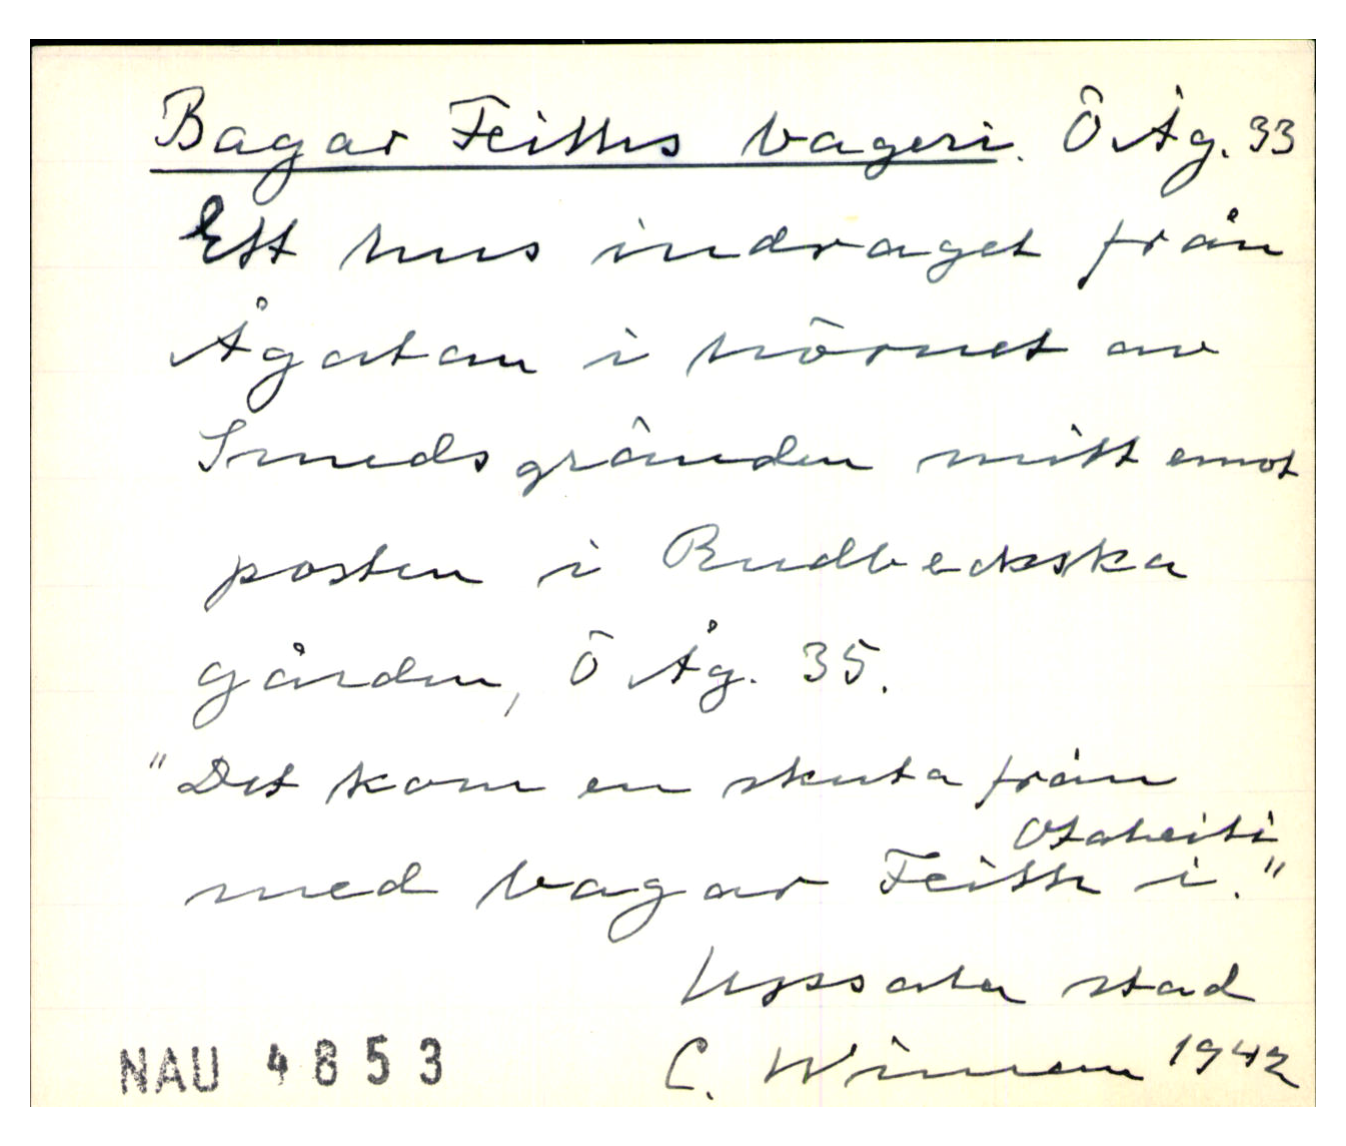 Bagar Feiths bageri. Ö Åg. 33
Ett hus indraget från
Ågatan i hörnet av
Smedsgränden mitt emot
posten i Rudbeckska
gården, Ö Åg. 35.
"Det kom en skuta från
Otaheiti
med bagar Feith i."
Uppsala stad
NAU 4853 C. Wiman 1942